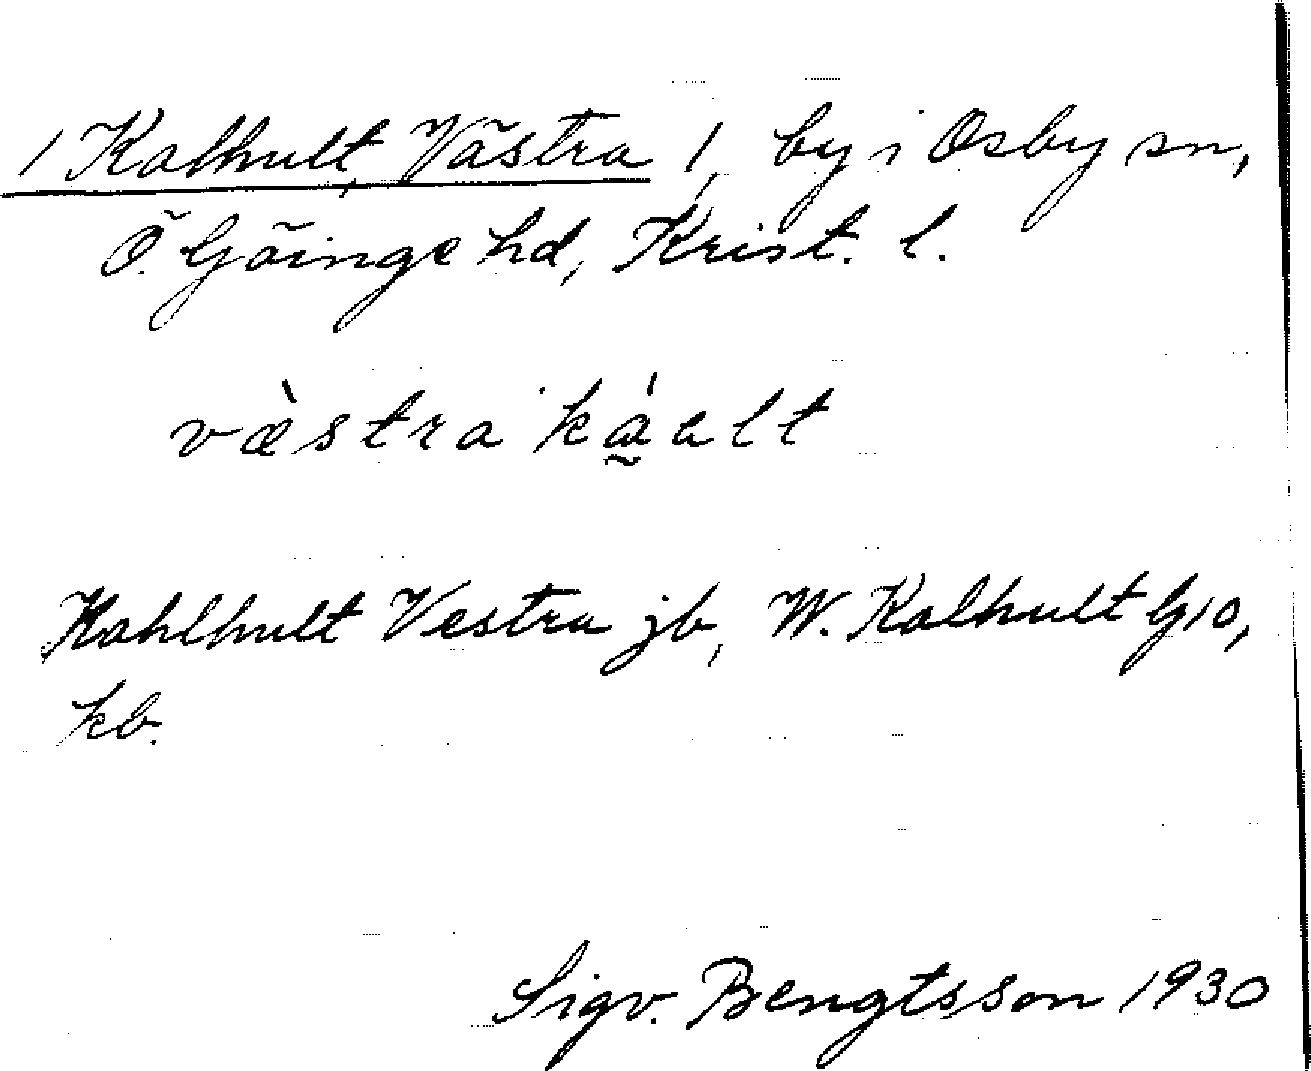 / Kalhult, Västra /, by i Osby sn,
Ö. Göinge hd, Krist. l.
væ̀stra ká̰alt
Kahlhult Vestra jb, W. Kalhult G10,
kb.
Sigv. Bengtsson 1930